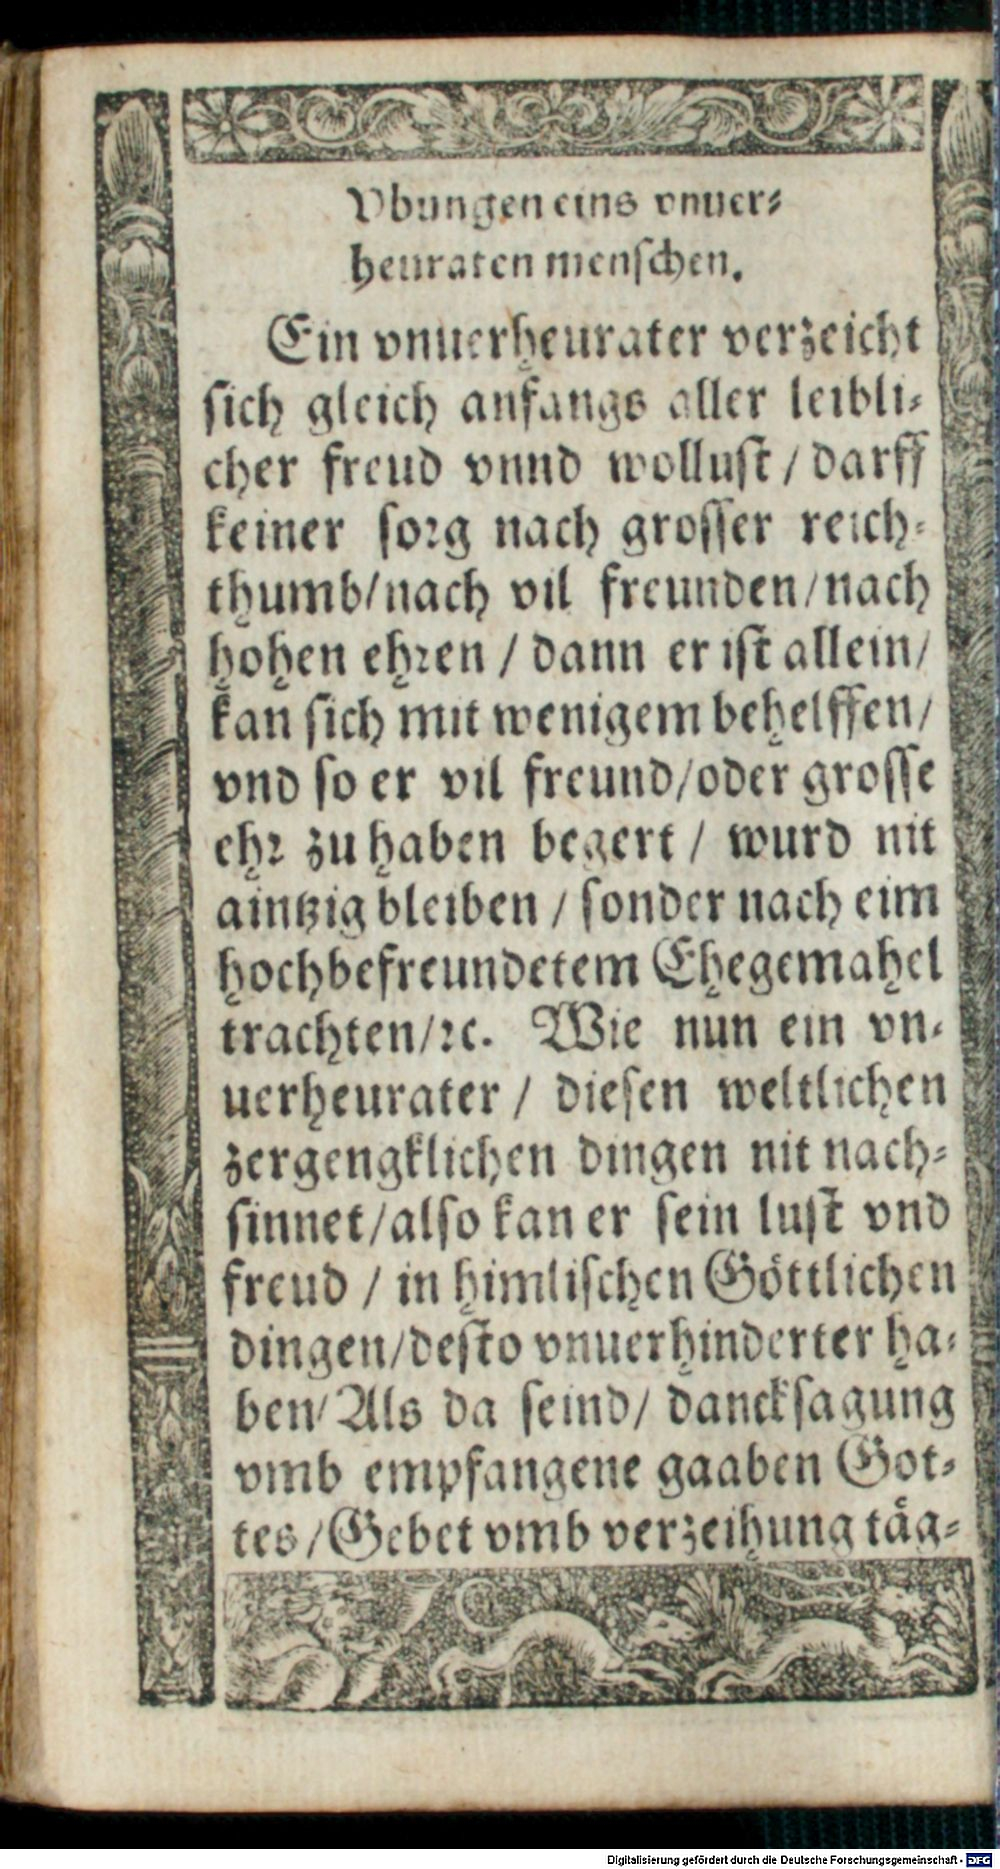 Vbungen eins vnuer⸗
heuraten menschen.
Ein vnuerheurater verzeicht
sich gleich anfangs aller leibli⸗
cher freud vnnd wollust / darff
keiner sorg nach grosser reich⸗
thumb/nach vil freunden/nach
hohen ehren / dann er ist allein/
kan sich mit wenigem behelffen/
vnd so er vil freund/oder grosse
ehr zu haben begert / wurd nit
aintzig bleiben / sonder nach eim
hochbefreundetem Ehegemahel
trachten/ꝛc. Wie nun ein vn⸗
uerheurater / diesen weltlichen
zergengklichen dingen nit nach⸗
sinnet/also kan er sein lust vnd
freud / in himlischen Göttlichen
dingen/desto vnuerhinderter ha⸗
ben/Als da seind/ dancksagung
vmb empfangene gaaben Got⸗
tes/Gebet vmb verzeihung täg⸗
Digitalisierung gefördert durch die Deutsche Forschungsgemeinschaft - DFG